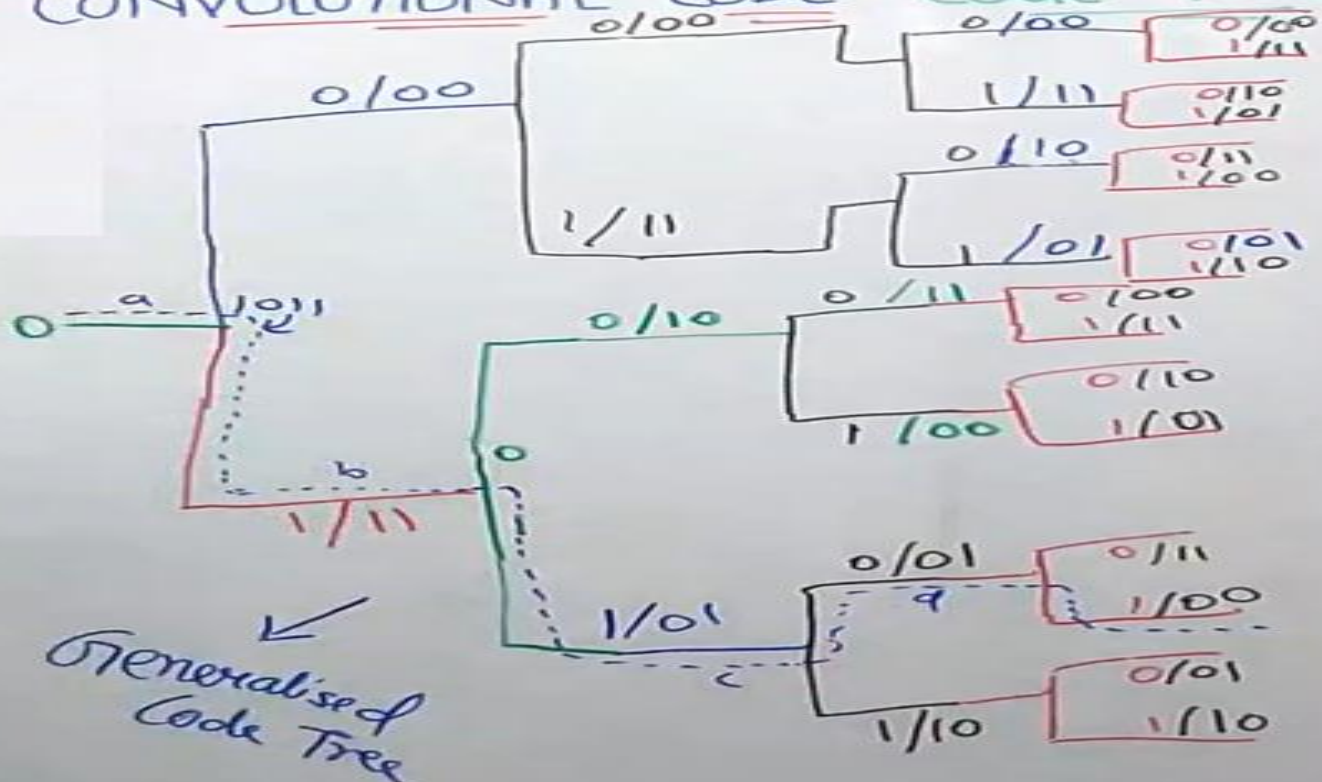 CONVOLUTIONAL CODE
0/00
0/00
0/00
1/11
0/00
1/11
0/10
1/01
0/10
0/11
1/00
1/11
1/01
0/01
1/10
0
a
1011
0/10
0/11
0/00
1/11
1/00
0/10
1/01
0
b
1/11
1/01
c
0/01
0/11
1/00
1/10
0/01
1/10
Generalised
Code Tree